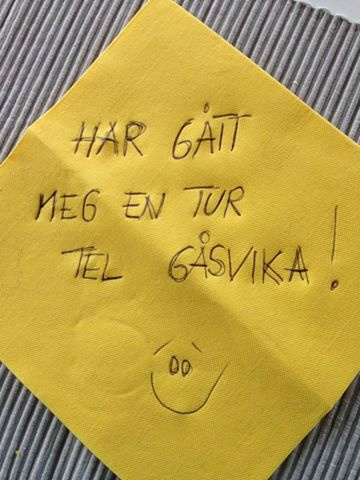 HAR GÅTT
MEG EN TUR
TEL GÅSVIKA!